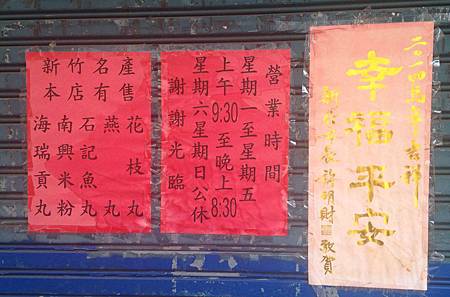 新竹名產
本店有售
花枝丸
燕丸
石記魚丸
南興米粉
海瑞貢丸
營業時間
星期一至星期五
上午9:30至晚上8:30
星期六星期日公休
謝謝光臨
二〇一四馬年吉祥
幸福平安
新竹市長許明財敬賀